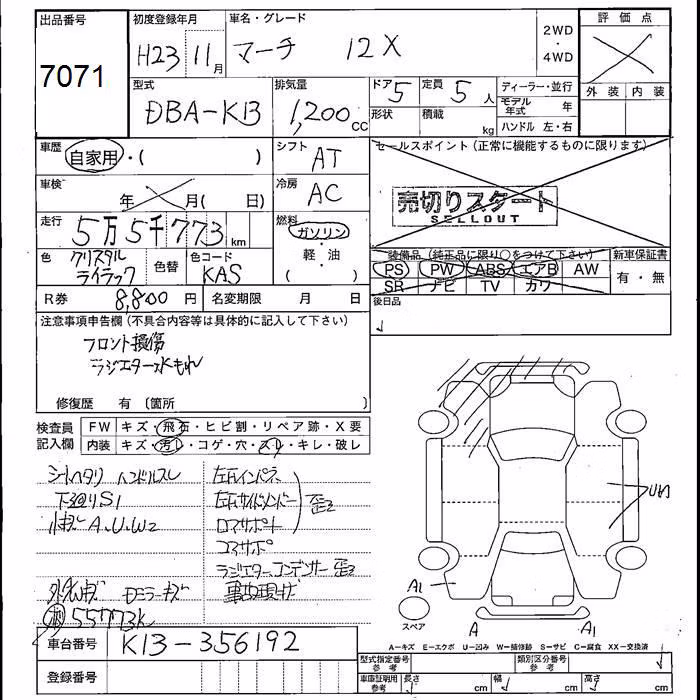 出品番号 初度登録年月 車名・グレード 2WD ・ 4WD 評価点
7071 H23 11月 マーチ 12X
型式 排気量 ドア 定員 ディーラー・並行 外装 内装
DBA-K13 1,200cc 5 5人 モデル年式 年
形状 積載 kg ハンドル 左・右
車歴 自家用・( ) シフト AT セールスポイント (正常に機能するものに限ります)
車検 年 月( 日) 冷房 AC 売切りスタート
SELLOUT
走行 5万5千773km 燃料 ガソリン・軽・油
色 クリスタルライラック 色替 色コード KAS 装備品 (純正品に限り○をつけて下さい) 新車保証書
PS PW ABS エアB AW 有・無
SR ナビ TV カワ
R券 8,800円 名変期限 月 日 後日品
注意事項申告欄 (不具合内容等は具体的に記入して下さい)
フロント損傷
ラジエター水もれ
修復歴 有 〔箇所 〕
検査員記入欄 FW キズ・飛石・ヒビ割・リペア跡・X要
内装 キズ・汚レ・コゲ・穴・スレ・キレ・破レ
シートヘタリ ハンドルスレ 左右インパネ
下廻りS1 左右サイドメンバー 歪
小キズ A.U.W2 ロアサポート
コアサポ
ラジエター コンデンサー 歪
ドアミラーキズ
55773k
A1
スペア A A1
A-キズ E-エクボ U-凹み W-補修跡 S-サビ C-腐食 XX-交換済
車台番号 K13-356192
型式指定番号 参考 類別区分番号 参考
登録番号 車庫証明用 参考 長さ cm 幅 cm 高さ cm